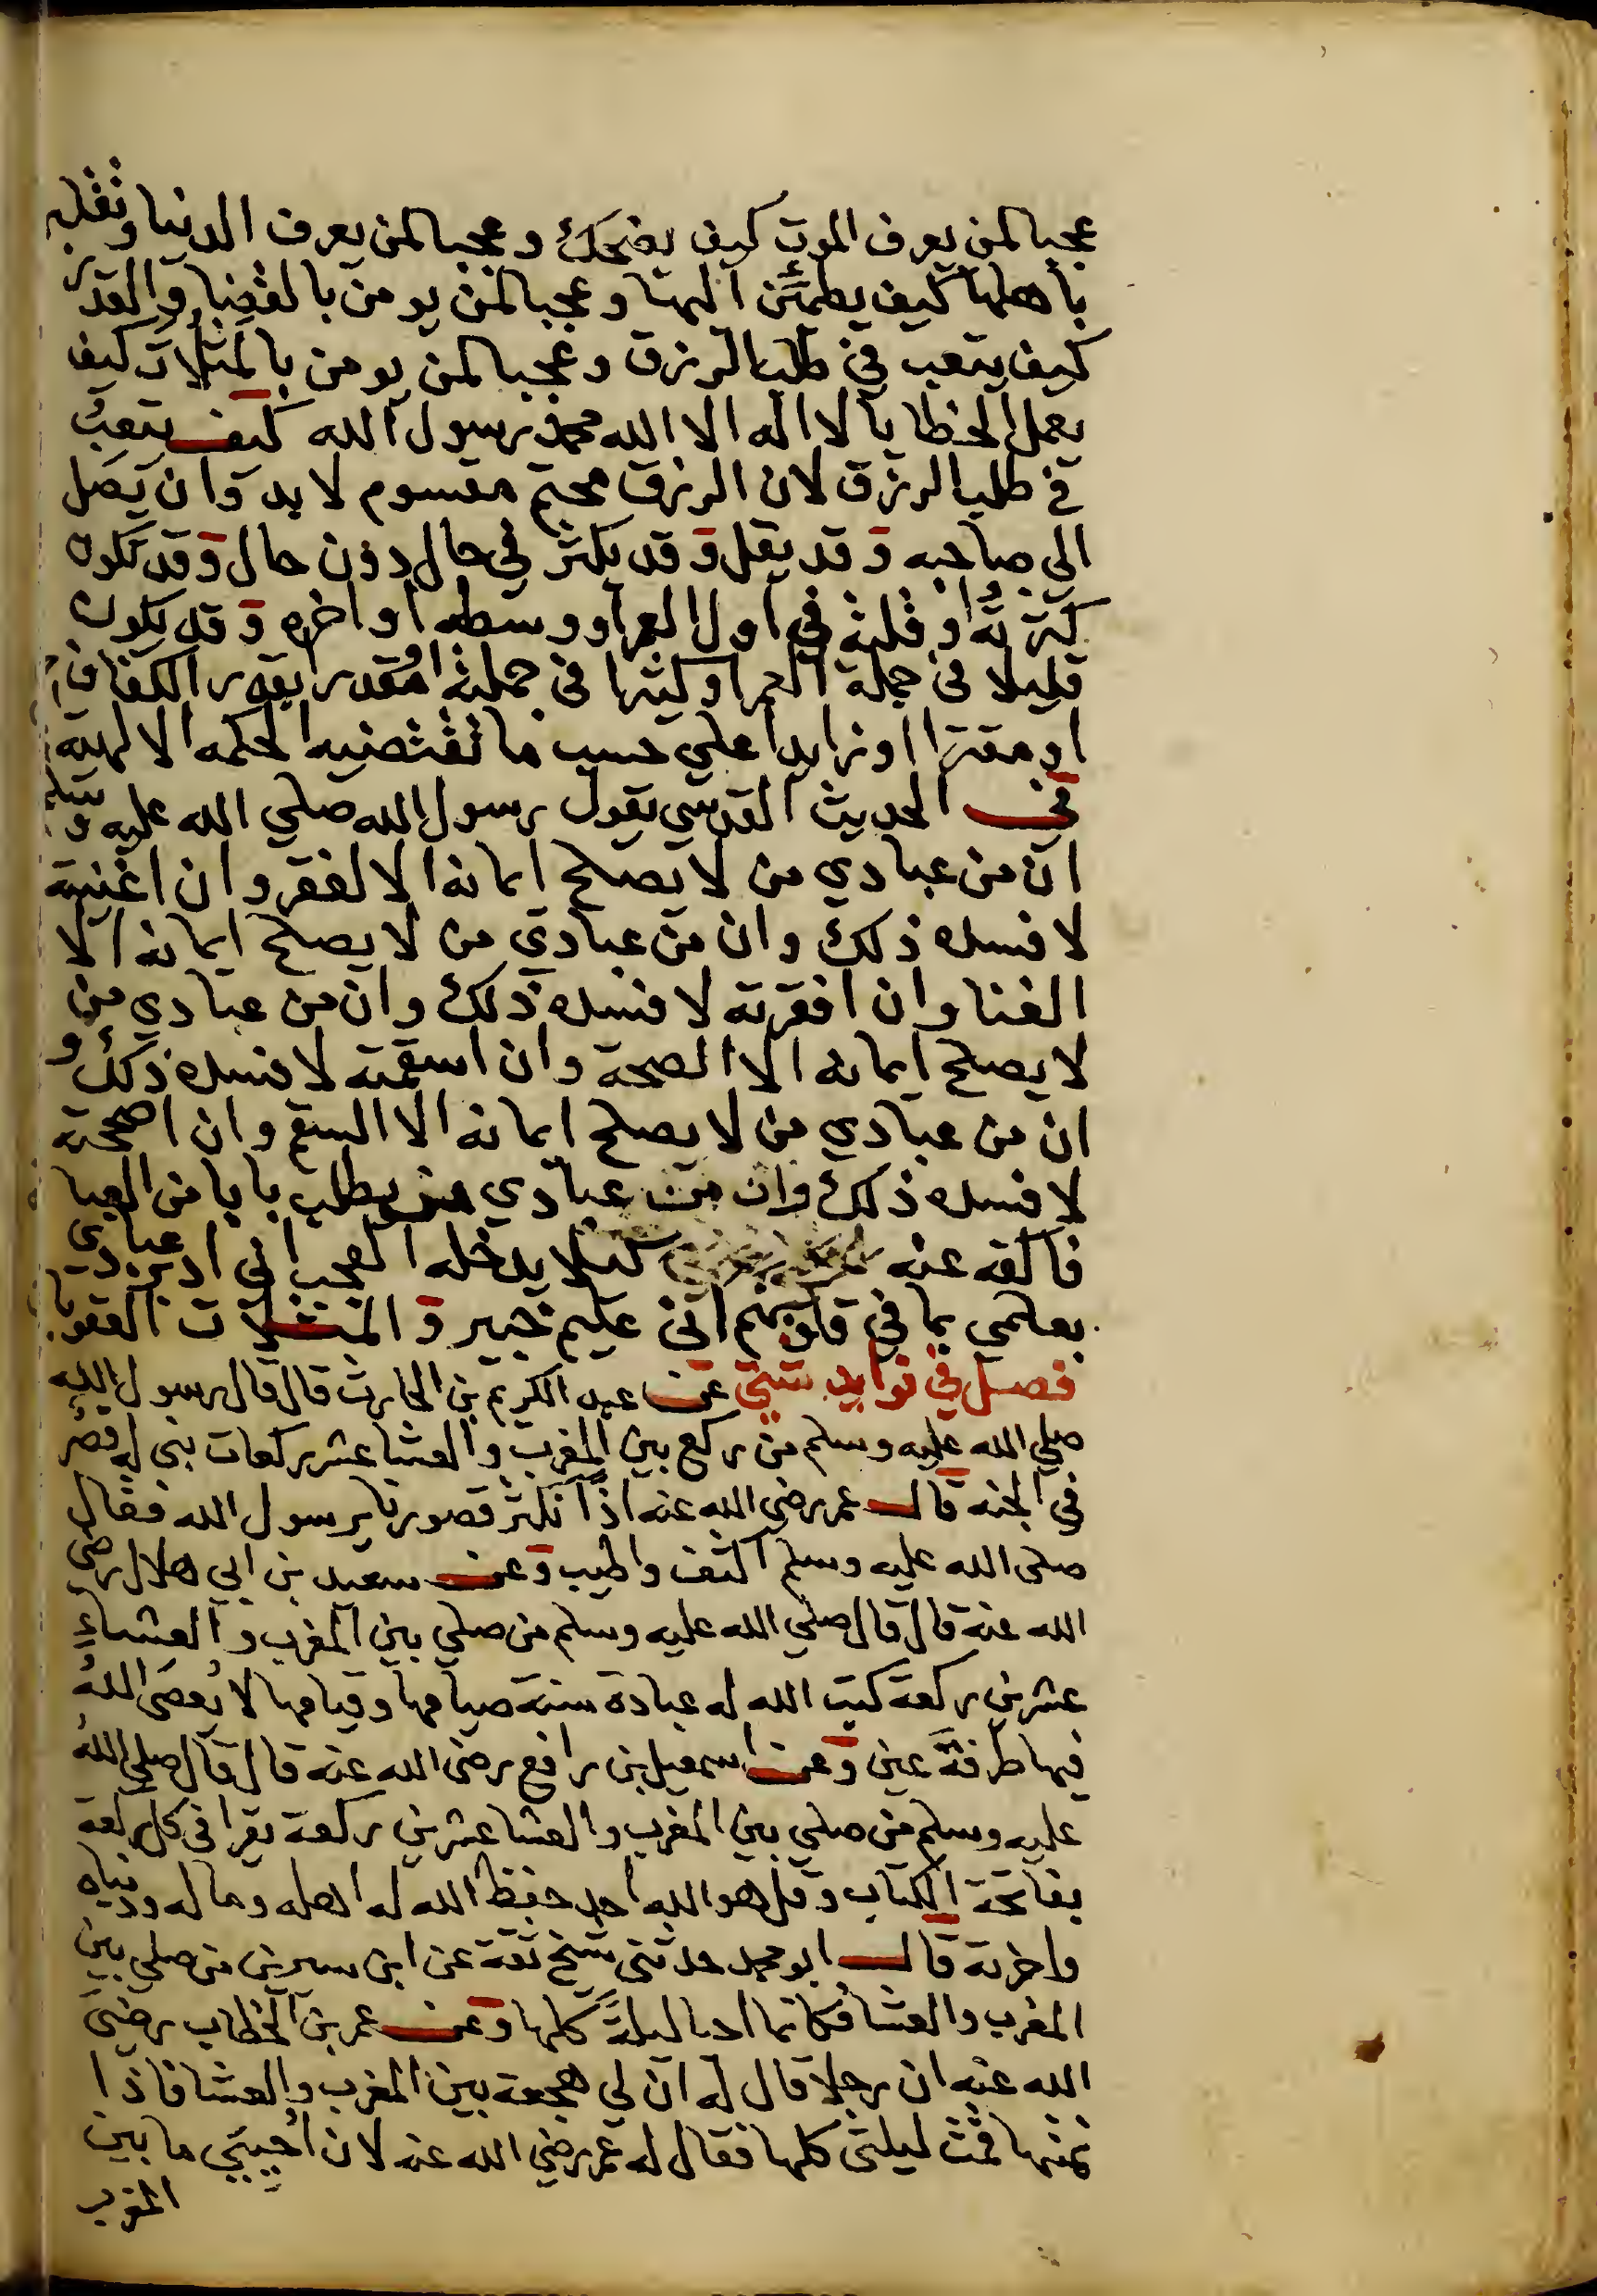 عجبا لمن يعرف الموت كيف يضحك وعجبا لمن يعرف الدنيا وتقلبها
باهلها كيف يطمئن اليها وعجبا لمن يومن بالقضا والقدر
كيف يتعب في طلب الرزق وعجبا لمن يومن بالمثلات كيف
يعمل الخطايا لا اله الا الله محمد رسول الله كيف يتعب
في طلب الرزق لان الرزق محتم مقسوم لا بد وان يصل
الي صاحبه وقد يقل وقد يكثر في حال دون حال وقد تكون
كثرته او قلته في اول العمر او وسطه او اخره وقد يكون
قليلا في جملة العمر او كثيرا في جملته او مقدر بقدر الكفاف
او مقترا او زايدا علي حسب ما تقتضيه الحكمه الالهية
في الحديث القدسي يقول رسول الله صلي الله عليه وسلم
ان من عبادي من لا يصلح ايمانه الا الفقر وان اغنيته
لافسده ذلك وان من عبادي من لا يصلح ايمانه الا
الغنا وان افقرته لافسده ذلك وان من عبادي من
لا يصلح ايمانه الا الصحة وان اسقمته لافسده ذلك و
ان من عبادي من لا يصلح ايمانه الا السقم وان اصححته
لافسده ذلك وان من عبادي من يطلب بابا من العبا
فاكفه عنه كيلا يدخله العجب اني ادبر عبادي
بعلمي بما في قلوبهم اني عليم خبير و المثلات العقوبات
فصل في فوايد شتي عن عبد الكريم بن الحارث قال قال رسول الله
صلي الله عليه وسلم من ركع بين المغرب والعشا عشر ركعات بني له قصر
في الجنه قال عمر رضي الله عنه اذا تكثر قصورنا يرسول الله فقال
صلي الله عليه وسلم اكثف واطيب وعن سعيد بن ابي هلال رضي
الله عنه قال قال صلي الله عليه وسلم من صلي بين المغرب والعشاء
عشرين ركعة كتب الله له عبادة سنة صيامها وقيامها لا يعصي الله
فيها طرفة عين وعن اسمعيل بن رافع رضي الله عنه قال قال صلي الله
عليه وسلم من صلي بين المغرب والعشا عشرين ركعة يقرا في كل ركعة
بفاتحة الكتاب وقل هو الله احد حفظ الله له اهله وماله ودنياه
واخرته قال ابو محمد حدثني شيخ ثقة عن ابن سيرين من صلي بين
المغرب والعشا فكانما احيا ليلة كلها وعن عمر بن الخطاب رضي
الله عنه ان رجلا قال له ان لي هجعة بين المغرب والعشا فاذا
نمتها قمت ليلتي كلها فقال له عمر رضي الله عنه لان احييتي ما بين
المغرب